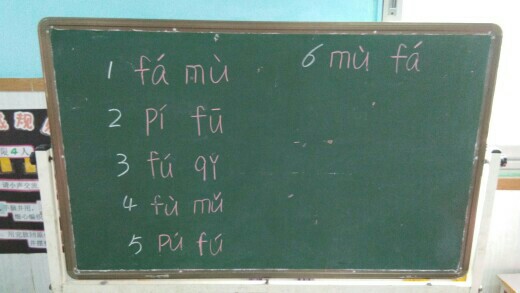 1 fá mù
6 mù fá
2 pí fū
3 fú qǐ
4 fù mǔ
5 pú fú